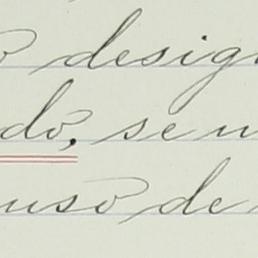 o desig
do, se u
uso de